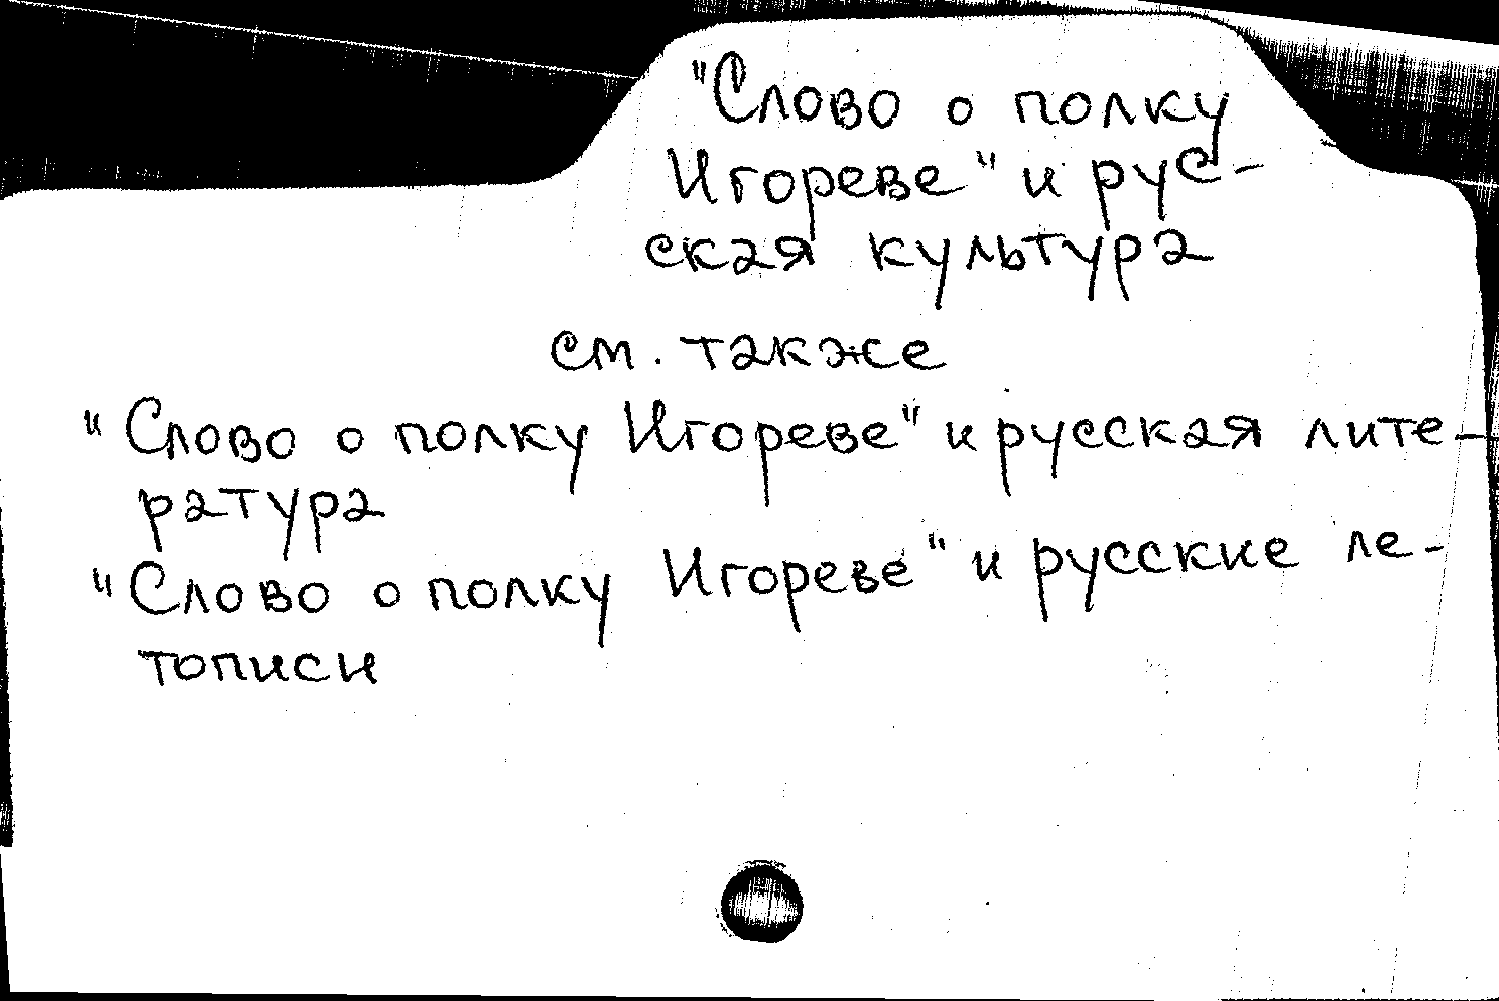 "Слово о полку
Игореве" и рус-
ская культура
см. также
"Слово о полку Игореве" и русская лите-
ратура
"Слово о полку Игореве" и русские ле-
тописи